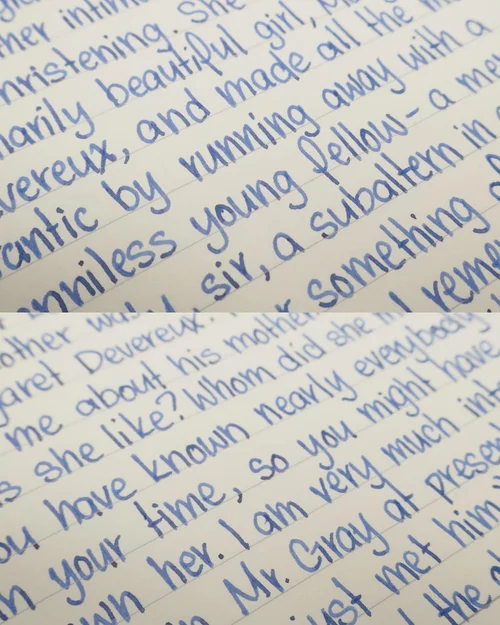 her intim
hristening. She
narily beautiful girl, M
vereux, and made all the m
antic by running away with a
nniless young fellow- a me
, sir, a subaltern in
something
I reme
other wa
garet Devereux.
me about his mothe
s she like? Whom did she m
ou have known nearly everybody
n your time, so you might have
own her. I am very much int
n Mr. Gray at prese
just met him
the